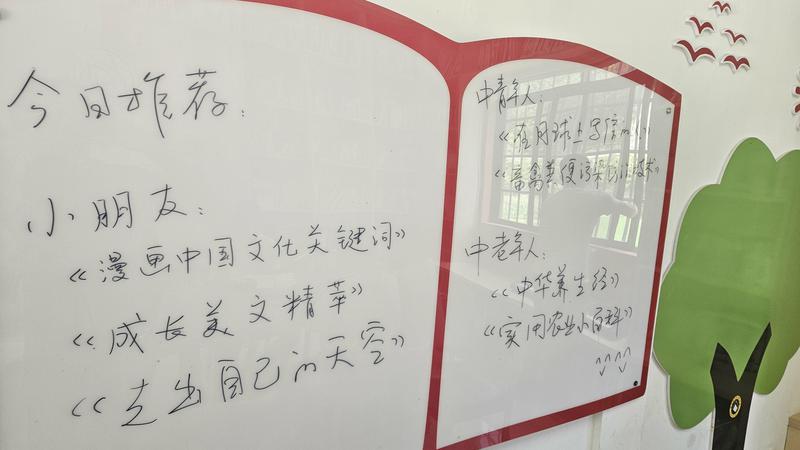 今日推荐:
小朋友:
《漫画中国文化关键词》
《成长美文精萃》
《走出自己的天空》
中青年人:
《在月球上写信的人》
《畜禽粪便污染防治技术》
中老年人:
《中华养生经》
《实用农业小百科》